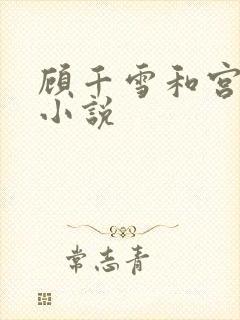 顾千雪和宫
小说
常志青